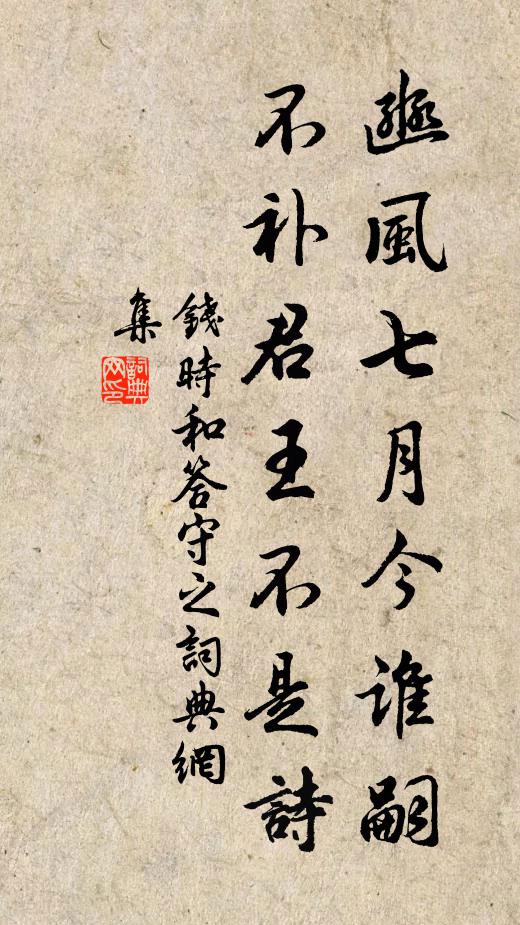 豳風七月今誰嗣
不补君王不是詩
錢時和答守之詞典網
集
詞典
网印